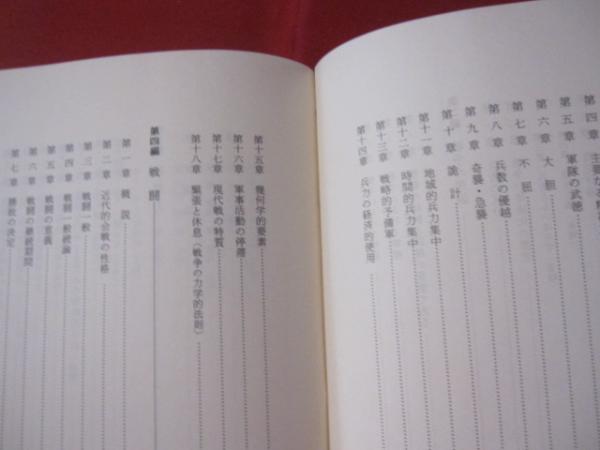 第四章 主要な
第五章 軍隊の武徳
第六章 大胆
第七章 不屈
第八章 兵数の優越
第九章 奇襲・急襲
第十章 詭計
第十一章 地域的兵力集中
第十二章 時間的兵力集中
第十三章 戦略的予備軍
第十四章 兵力の経済的使用
第十五章 幾何学的要素
第十六章 軍事活動の停滞
第十七章 現代戦の特質
第十八章 緊張と休息(戦争の力学的法則)
第四編 戦闘
第一章 概説
第二章 近代的会戦の性格
第三章 戦闘一般
第四章 戦闘一般続論
第五章 戦闘の意義
第六章 戦闘の継続期間
第七章 勝敗の決定